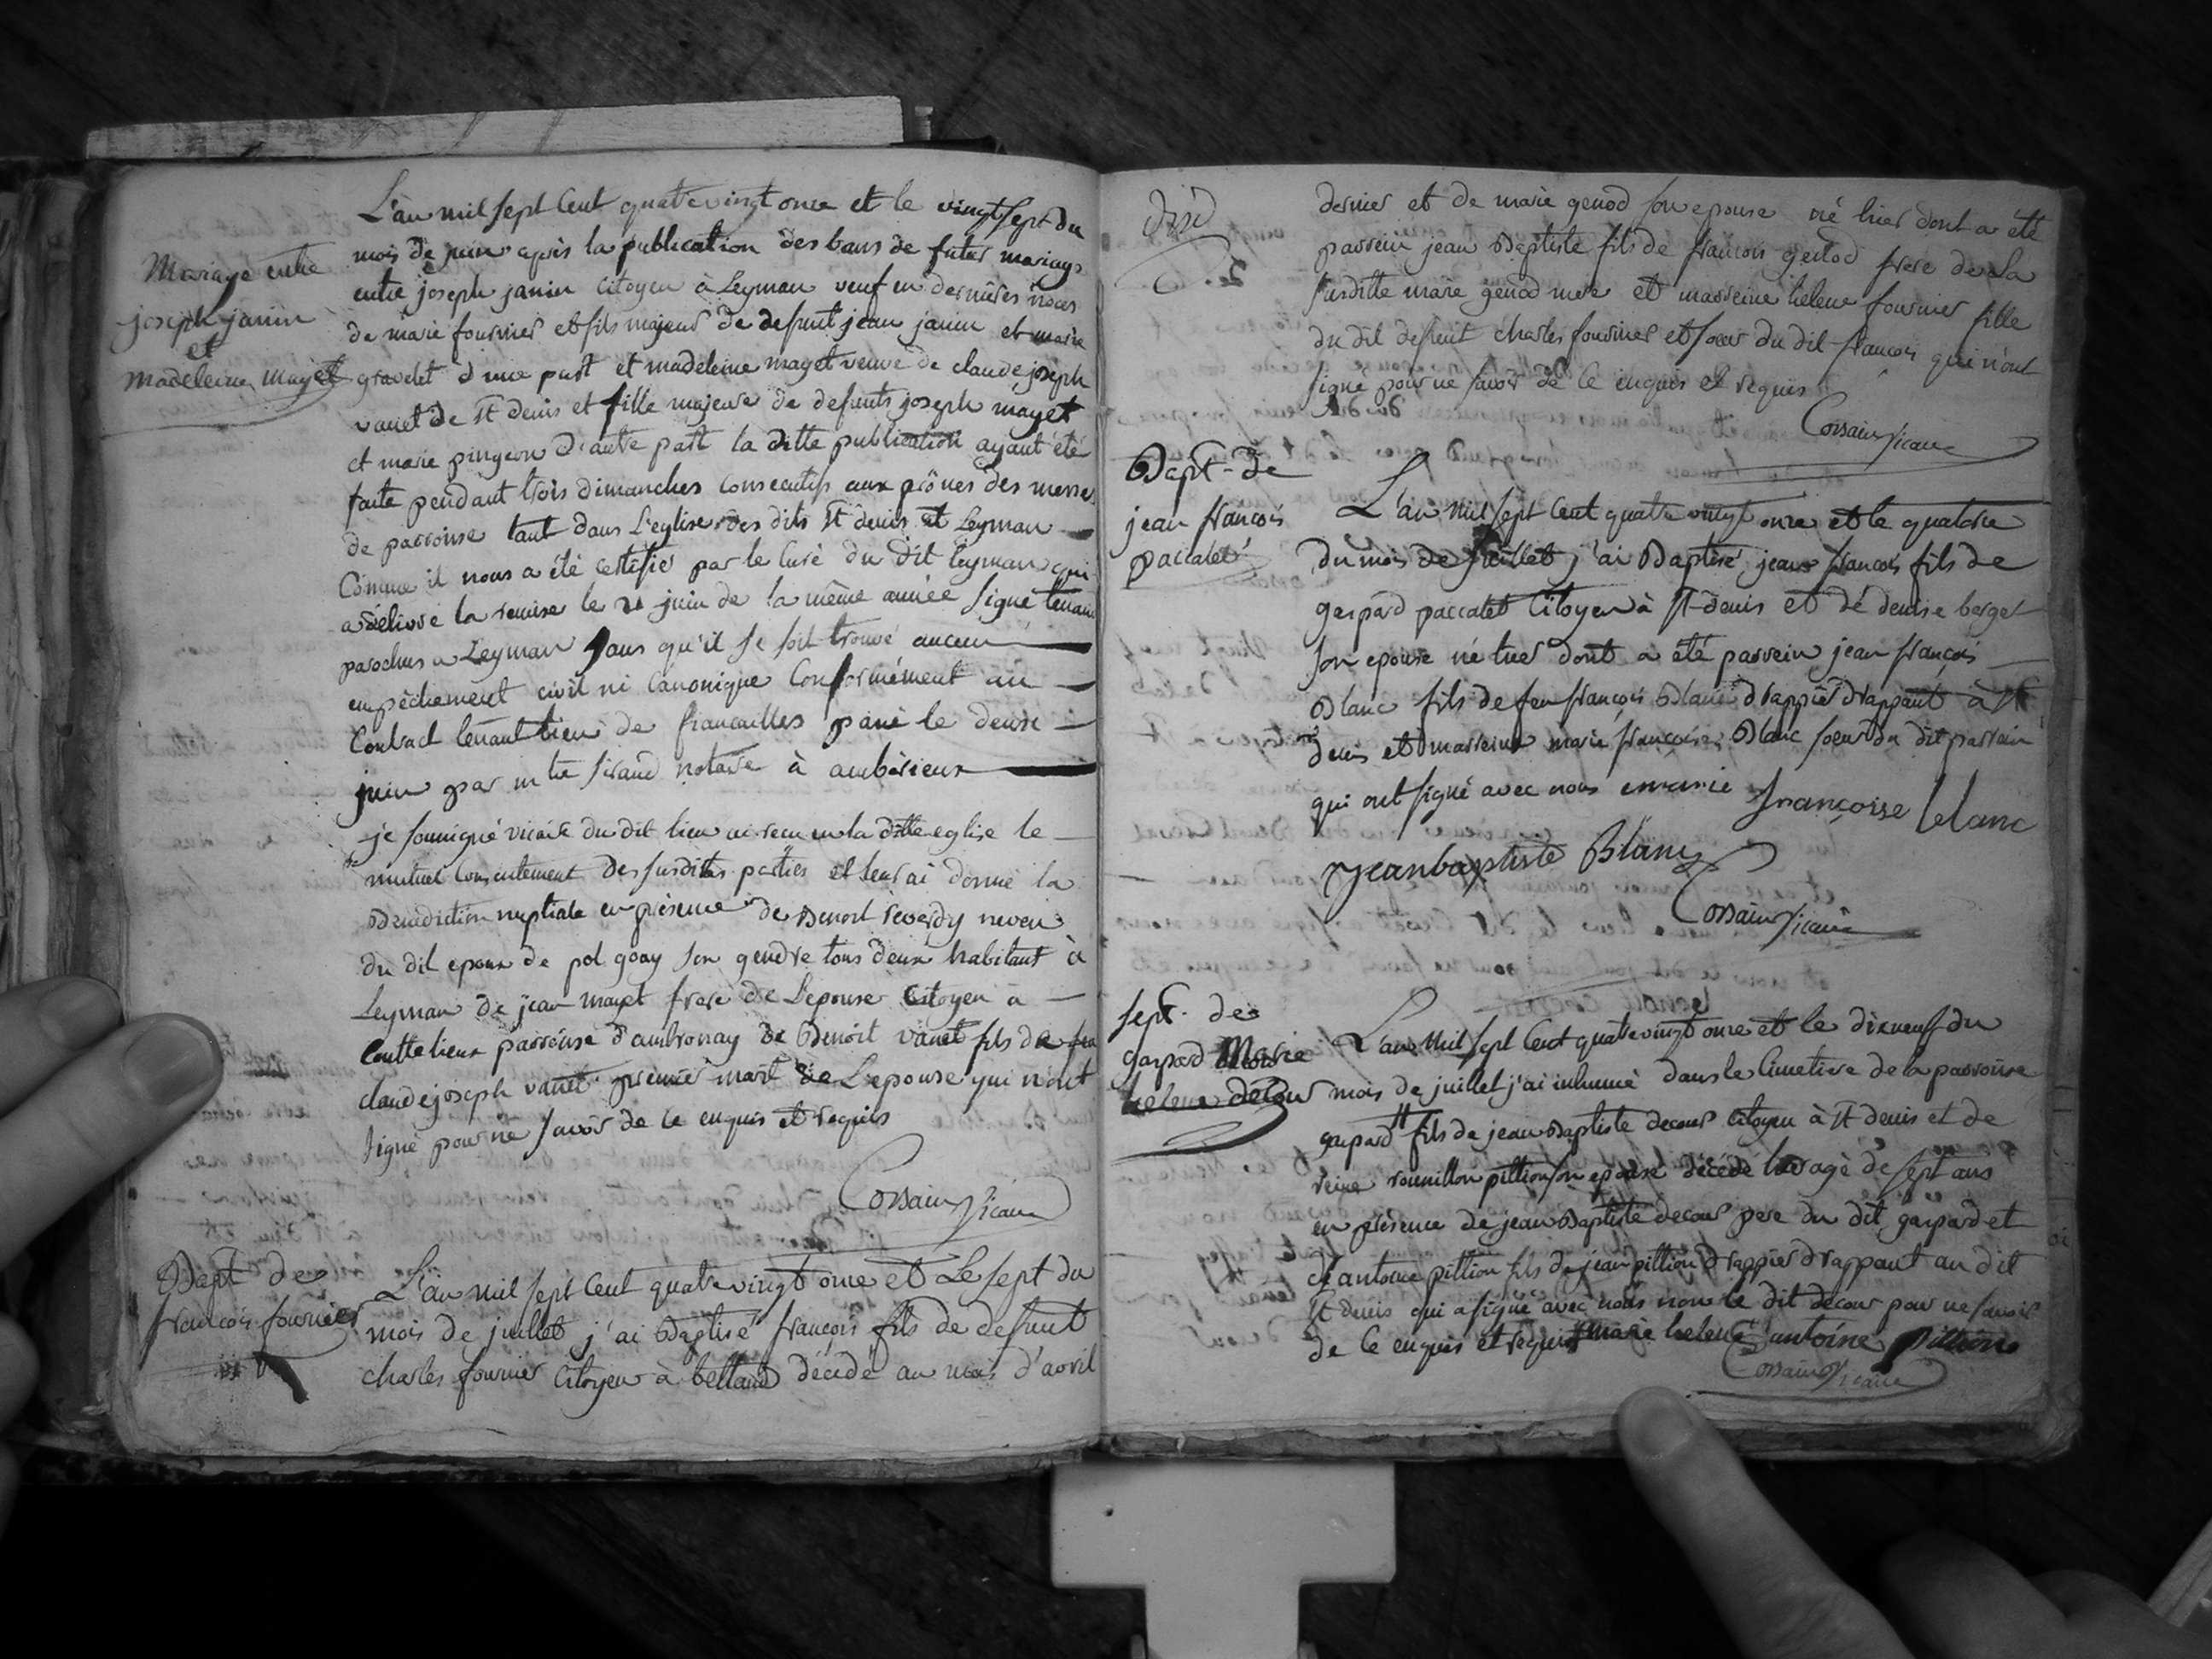 Mariage entre
joseph janin
et
Madeleine Mayet
L'an mil sept Cent quatre vingt onze et le vingt sept du
mois de juin après la publication des bans de futur mariage
entre joseph janin Citoyen à Leyman veuf en dernières noces
de marie fournier et fils majeur de defunt jean janin et marie
gravelet d'une part et madeleine mayet veuve de claude joseph
vanet de St denis et fille majeure de defunts joseph mayet
et marie pingeon d'autre part la ditte publication ayant été
faite pendant trois dimanches consecutifs aux prônes des messes
de parroisse tant dans L'eglise des dits St denis et Leyman
Comme il nous a été certifié par le Curé du dit leyman qui
a délivré la remise le 21 juin de la même année signé tenand
parochus a Leyman sans qu'il se soit trouvé aucun
empêchement civil ni Canonique Conformément au
Contract tenant lieu de fiancailles passé le deuse
juin par m tre sirand notaire à ambérieux
je soussigné vicaire du dit lieu ai recu en la ditte eglise le
mutuel Consentement des susdites parties et leur ai donné la
Benediction nuptiale en présence de Benoit reverdy neveu
du dit epoux de pol goay son gendre tous deux habitant à
Leyman de jean mayet frere de L'epouse Citoyen a
Couttelieux parroisse d'ambronay de Benoit vanet fils de feu
claude joseph vanet premier mari de L'epouse qui n'ont
signé pour ne savoir de ce enquis et requis
Corsain Vicaire
Bapt de
francois fournier
L'an mil sept Cent quatre vingt onze et Le sept du
mois de juillet j'ai Baptisé françois fils de defunt
charles fournier Citoyen à bettand décédé au mois d'avril
dernier et de marie genod son epouse né hier dont a été
parrein jean Baptiste fils de francois genod frere de La
susditte marie genod mere et marreine helene fournier fille
du dit defunt charles fournier et soeur du dit françois qui n'ont
signé pour ne savoir de Ce enquis et requis
Corsain Vicaire
Bapt. de
jean françois
paccalet
L'an mil sept Cent quatre vingt onze et le quatorze
du mois de juillet j'ai Baptisé jean francois fils de
gaspard paccalet Citoyen à St denis et de denise berger
son epouse né hier dont a été parrein jean françois
Blanc fils de feu françois Blanc drappier drappant à St
denis et marreine marie françoise Blanc soeur du dit parrein
qui ont signé avec nous marie françoise blanc
jean baptiste Blanc
Corsain Vicaire
sept. de
gaspard Marie
helene decour
L'an Mil sept Cent quatre vingt onze et le dixneuf du
mois de juillet j'ai inhumé dans le Cimetiere de la parroisse
gaspard # fils de jean Baptiste decour Citoyen à St denis et de
reine rouuillon pittion son epouse décédé hier agé de sept ans
en présence de jean Baptiste decour pere du dit gaspard et
d'antoine pittion fils de jean pittion drappier drappant au dit
St denis qui a signé avec nous non le dit decour pour ne savoir
de Ce enquis et requis # marie helene antoine pittion
Corsain Vicaire